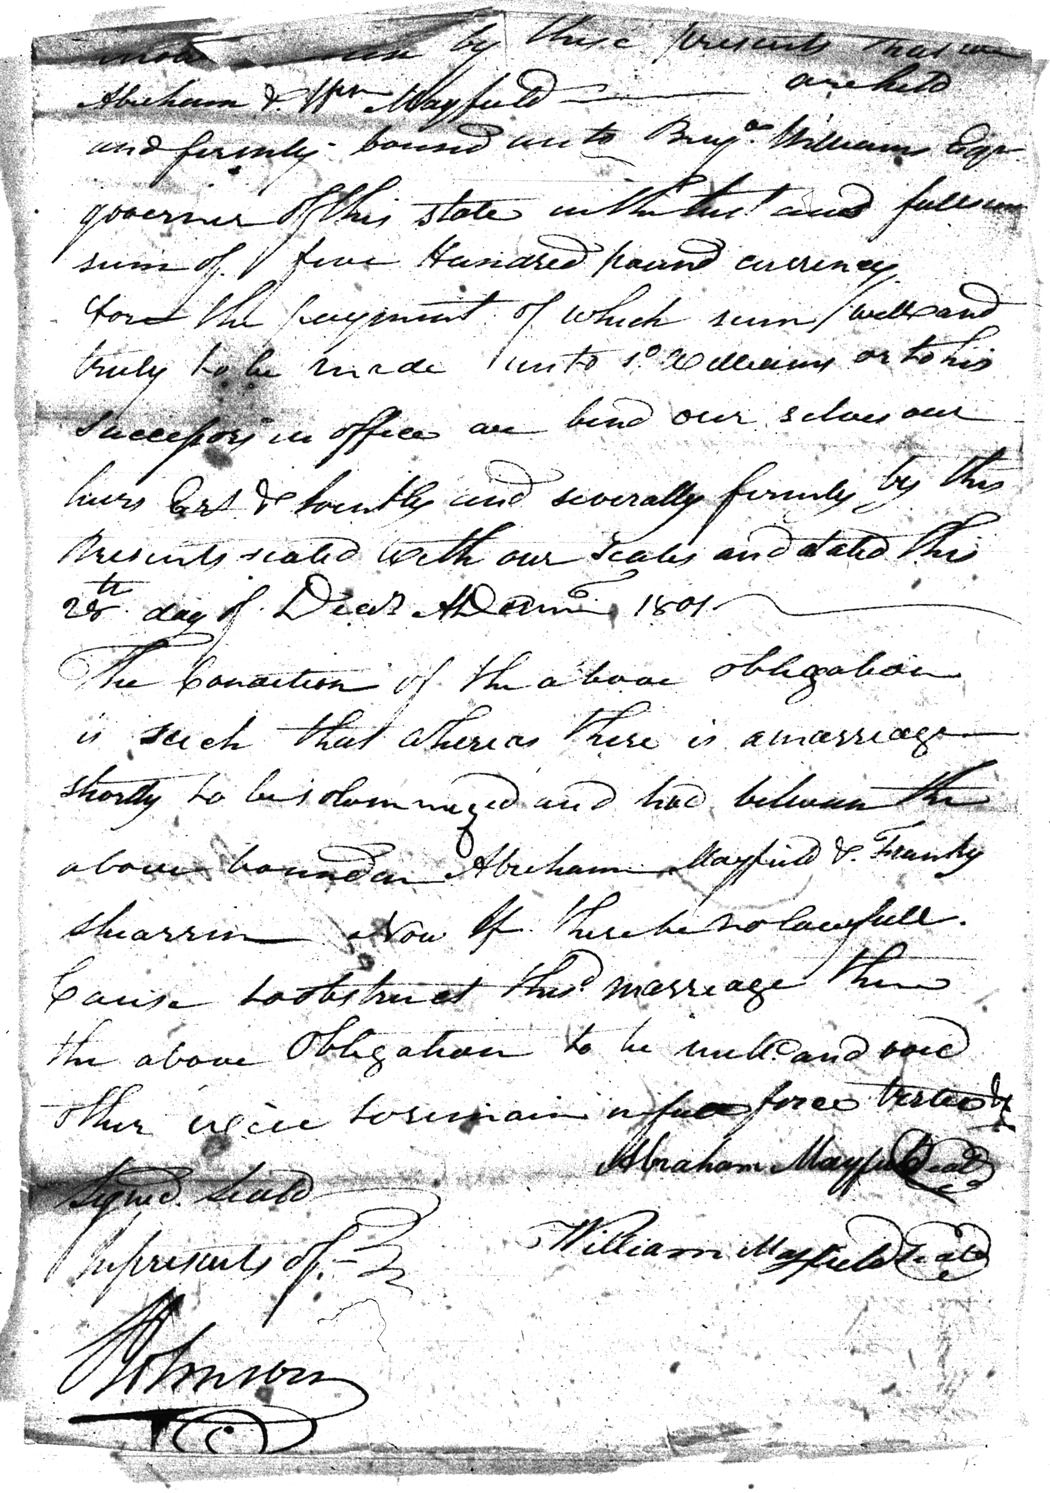 by these presents that we
Abraham & Wm Mayfield are held
and firmly bound unto Benjn Williams Esqr
governer of this state in the Just and full sum
sum of five Hundred pound currency
fore the payment of which sum well and
truly to be made unto sd Williams or to his
Successors in office we bind our selves our
heirs Exs & Jointly and severally firmly by this
Presents sealed with our seales and dated this
28th day of Decr ADomi 1801
The Condition of the above obligation
is such that whereas there is a marriage
shortly to be solomnized and had between the
above bounden Abraham Mayfield & Franky
shearrin Now If there be no lawfull
Cause to obstruct this marriage then
the above Obligation to be null and void
other wise to remain in full force
Abraham Mayfield Seal
Signed Seald
William Mayfield Seal
In presents of
Johnson